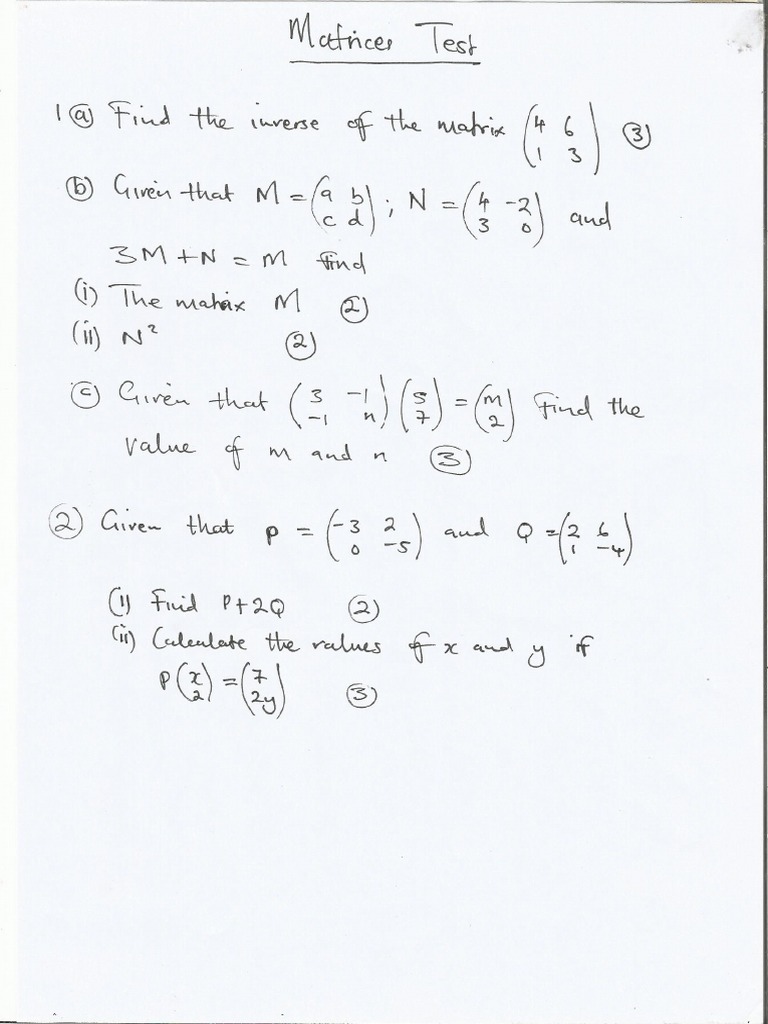 Matrices Test
1 (a) Find the inverse of the matrix (4 6 ; 1 3) (3)
(b) Given that M = (a b ; c d) ; N = (4 -2 ; 3 0) and
3M + N = M find
(i) The matrix M (2)
(ii) N² (2)
(c) Given that (3 -1 ; -1 n) (5 ; 7) = (m ; 2) Find the
value of m and n (3)
(2) Given that P = (-3 2 ; 0 -5) and Q = (2 6 ; 1 -4)
(i) Find P + 2Q (2)
(ii) Calculate the values of x and y if
P (x ; 2) = (7 ; 2y) (3)